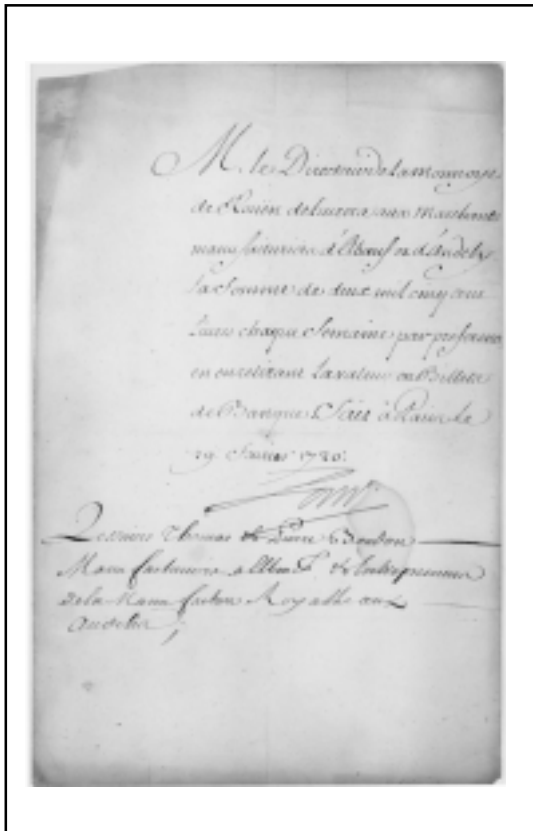 M. le Directeur de la monnoye
de Rouën delivrera aux Marchands
manufacturiers d'Elbeuf et d'Andely
la Somme de deux mil cinq cens
livres chaque Semaine par preference
en en retirant la valeur en Billets
de Banque. Fait à Paris le
29 Janvier 1720.
Law
Thomas & Pierre
Manufacturiers a Elbeuf & Entrepreneurs
de la Manufacture Royalle aux
Andelis